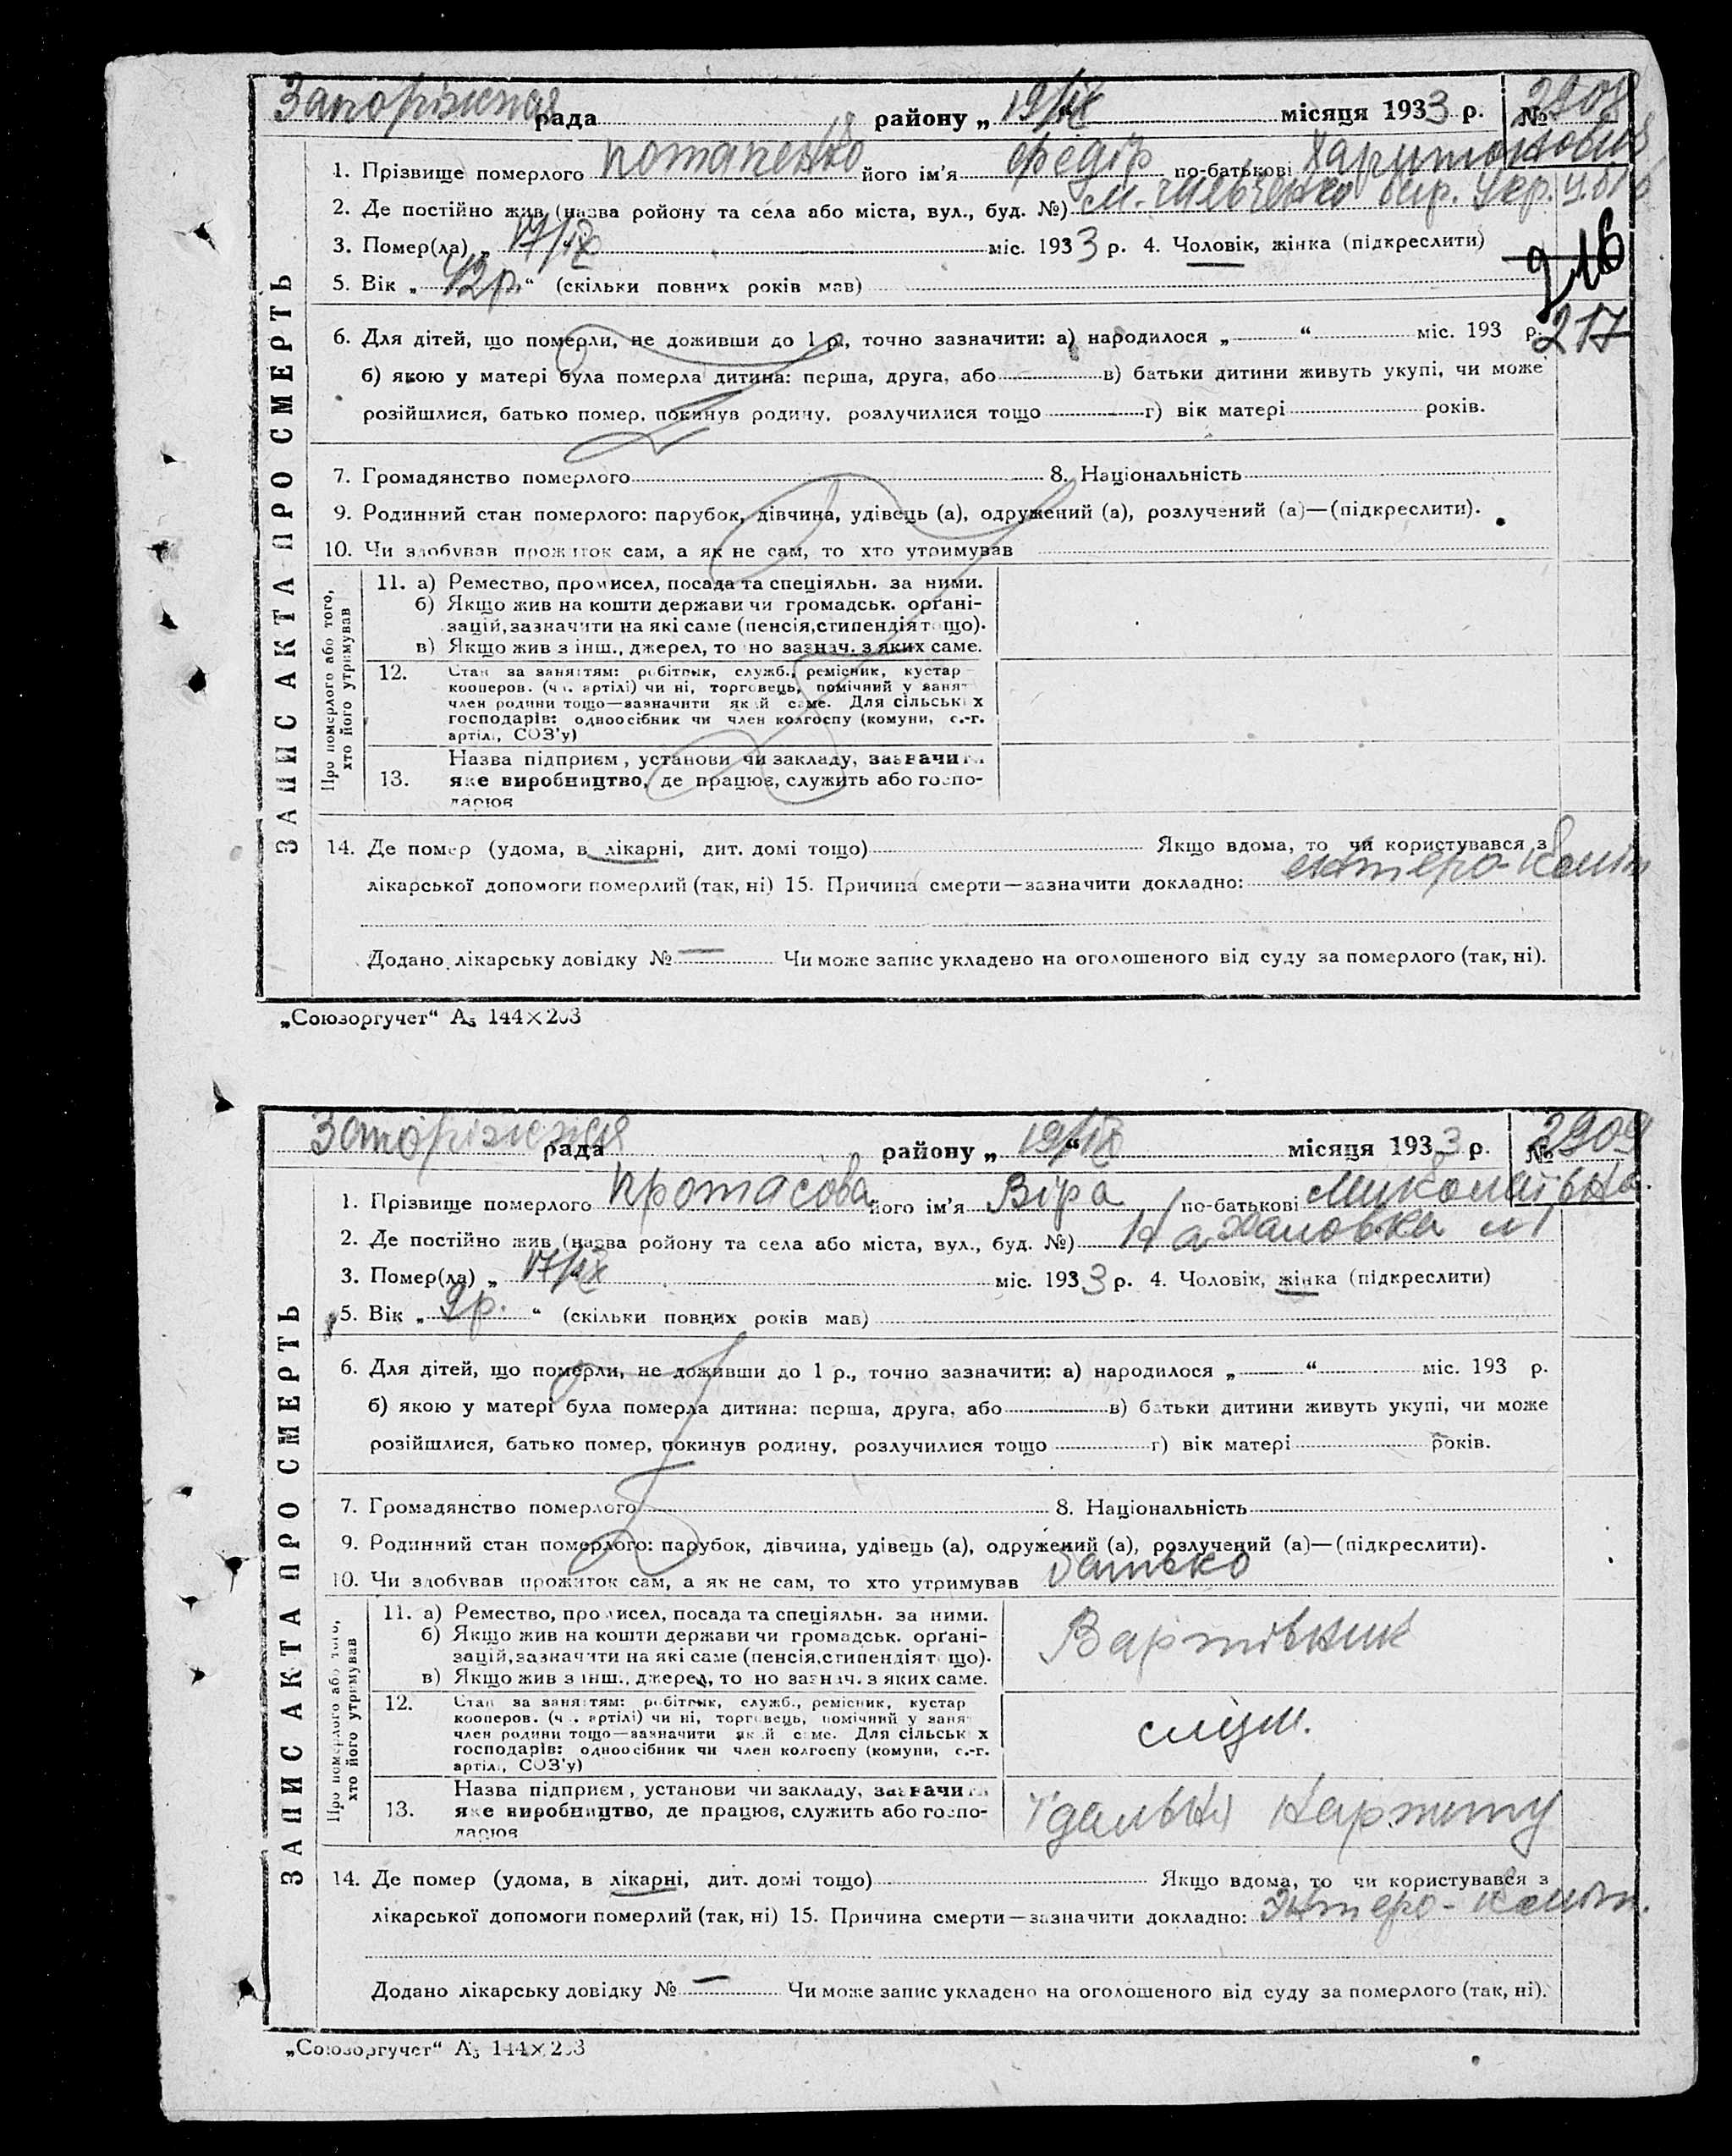 Запоріжная рада району „ 19/IX “ місяця 1933 р. № 2908
1. Прізвище померлого Потапенко його ім'я Федір по-батькові Харитонович
2. Де постійно жив (назва ройону та села або міста, вул., буд. №) Укр.
3. Помер(ла) „ 17/IX міс. 1933 р. 4. Чоловік, жінка (підкреслити)
216
5. Вік „ 42 р. “ (скільки повних років мав)
6. Для дітей, що померли, не доживши до 1 р., точно зазначити: а) народилося „ “ міс. 193 р.
217
б) якою у матері була померла дитина: перша, друга, або в) батьки дитини живуть укупі, чи може
розійшлися, батько помер, покинув родину, розлучилися тощо г) вік матері років.
7. Громадянство померлого 8. Національність
9. Родинний стан померлого: парубок, дівчина, удівець (а), одружений (а), розлучений (а)—(підкреслити).
10. Чи здобував прожиток сам, а як не сам, то хто утримував
ЗАПИС АКТА ПРО СМЕРТЬ
Про померлого або того,
хто його утримував
11. а) Ремество, промисел, посада та спеціяльн. за ними.
б) Якщо жив на кошти держави чи громадськ. орґані-
зацій, зазначити на які саме (пенсія, стипендія тощо).
в) Якщо жив з інш., джерел, то но зазнач. з яких саме.
12. Стан за заняттям: робітник, служб., ремісник, кустар
кооперов. (чл. артілі) чи ні, торговець, помічний у занят
член родини тощо—зазначити який саме. Для сільських
господарів: одноосібник чи член колгоспу (комуни, с.-г.
артілі, СОЗ'у)
Назва підприєм, установи чи закладу, зазначити
13. яке виробництво, де працює, служить або госпо-
дарює
14. Де помер (удома, в лікарні, дит. домі тощо) Якщо вдома, то чи користувався з
лікарської допомоги померлий (так, ні) 15. Причина смерти—зазначити докладно: ентеро-коліт
Додано лікарську довідку № — Чи може запис укладено на оголошеного від суду за померлого (так, ні).
„Союзоргучет“ А5 144×203
Запоріжная рада району „ 19/IX “ місяця 1933 р. № 2909
1. Прізвище померлого Протасова його ім'я Віра по-батькові Миколаївна
2. Де постійно жив (назва ройону та села або міста, вул., буд. №)
3. Помер(ла) „ 17/IX міс. 1933 р. 4. Чоловік, жінка (підкреслити)
5. Вік „ 9 р. “ (скільки повних років мав)
6. Для дітей, що померли, не доживши до 1 р., точно зазначити: а) народилося „ “ міс. 193 р.
б) якою у матері була померла дитина: перша, друга, або в) батьки дитини живуть укупі, чи може
розійшлися, батько помер, покинув родину, розлучилися тощо г) вік матері років.
7. Громадянство померлого 8. Національність
9. Родинний стан померлого: парубок, дівчина, удівець (а), одружений (а), розлучений (а)—(підкреслити).
10. Чи здобував прожиток сам, а як не сам, то хто утримував батько
ЗАПИС АКТА ПРО СМЕРТЬ
Про померлого або того,
хто його утримував
11. а) Ремество, промисел, посада та спеціяльн. за ними.
б) Якщо жив на кошти держави чи громадськ. орґані-
зацій, зазначити на які саме (пенсія, стипендія тощо).
в) Якщо жив з інш., джерел, то но зазнач. з яких саме.
Вартівник
12. Стан за заняттям: робітник, служб., ремісник, кустар
кооперов. (чл. артілі) чи ні, торговець, помічний у занят
член родини тощо—зазначити який саме. Для сільських
господарів: одноосібник чи член колгоспу (комуни, с.-г.
артілі, СОЗ'у)
служ.
Назва підприєм, установи чи закладу, зазначити
13. яке виробництво, де працює, служить або госпо-
дарює
їдальня Нарпиту
14. Де помер (удома, в лікарні, дит. домі тощо) Якщо вдома, то чи користувався з
лікарської допомоги померлий (так, ні) 15. Причина смерти—зазначити докладно: Энтеро-коліт.
Додано лікарську довідку № — Чи може запис укладено на оголошеного від суду за померлого (так, ні).
„Союзоргучет“ А5 144×203